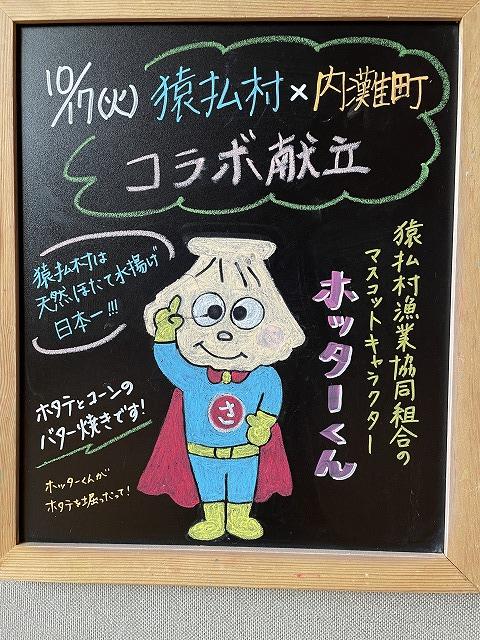 10/17(火) 猿払村×内灘町
コラボ献立
猿払村は
天然ほたて水揚げ
日本一!!!
ホタテとコーンの
バター焼きです!
ホッターくんが
ホタテを掘っだって!
猿払村漁業協同組合の
マスコットキャラクター
ホッターくん
さ